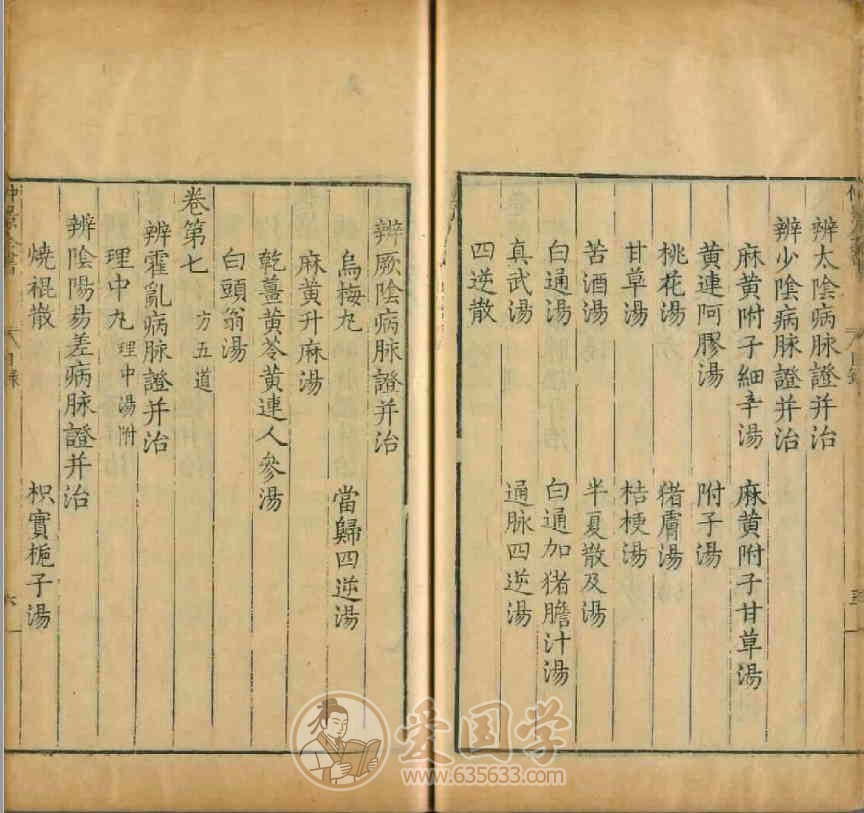 辨太陰病脉證并治
辨少陰病脉證并治
麻黄附子細辛湯 麻黄附子甘草湯
黄連阿膠湯 附子湯
桃花湯 猪膚湯
甘草湯 桔梗湯
苦酒湯 半夏散及湯
白通湯 白通加猪膽汁湯
真武湯 通脉四逆湯
四逆散
辨厥陰病脉證并治
烏梅丸 當歸四逆湯
麻黄升麻湯
乾薑黄苓黄連人參湯
白頭翁湯
卷第七 方五道
辨霍亂病脉證并治
理中丸 理中湯附
辨陰陽易差病脉證并治
燒裩散 枳實梔子湯
六
爱国学
www.635633.com